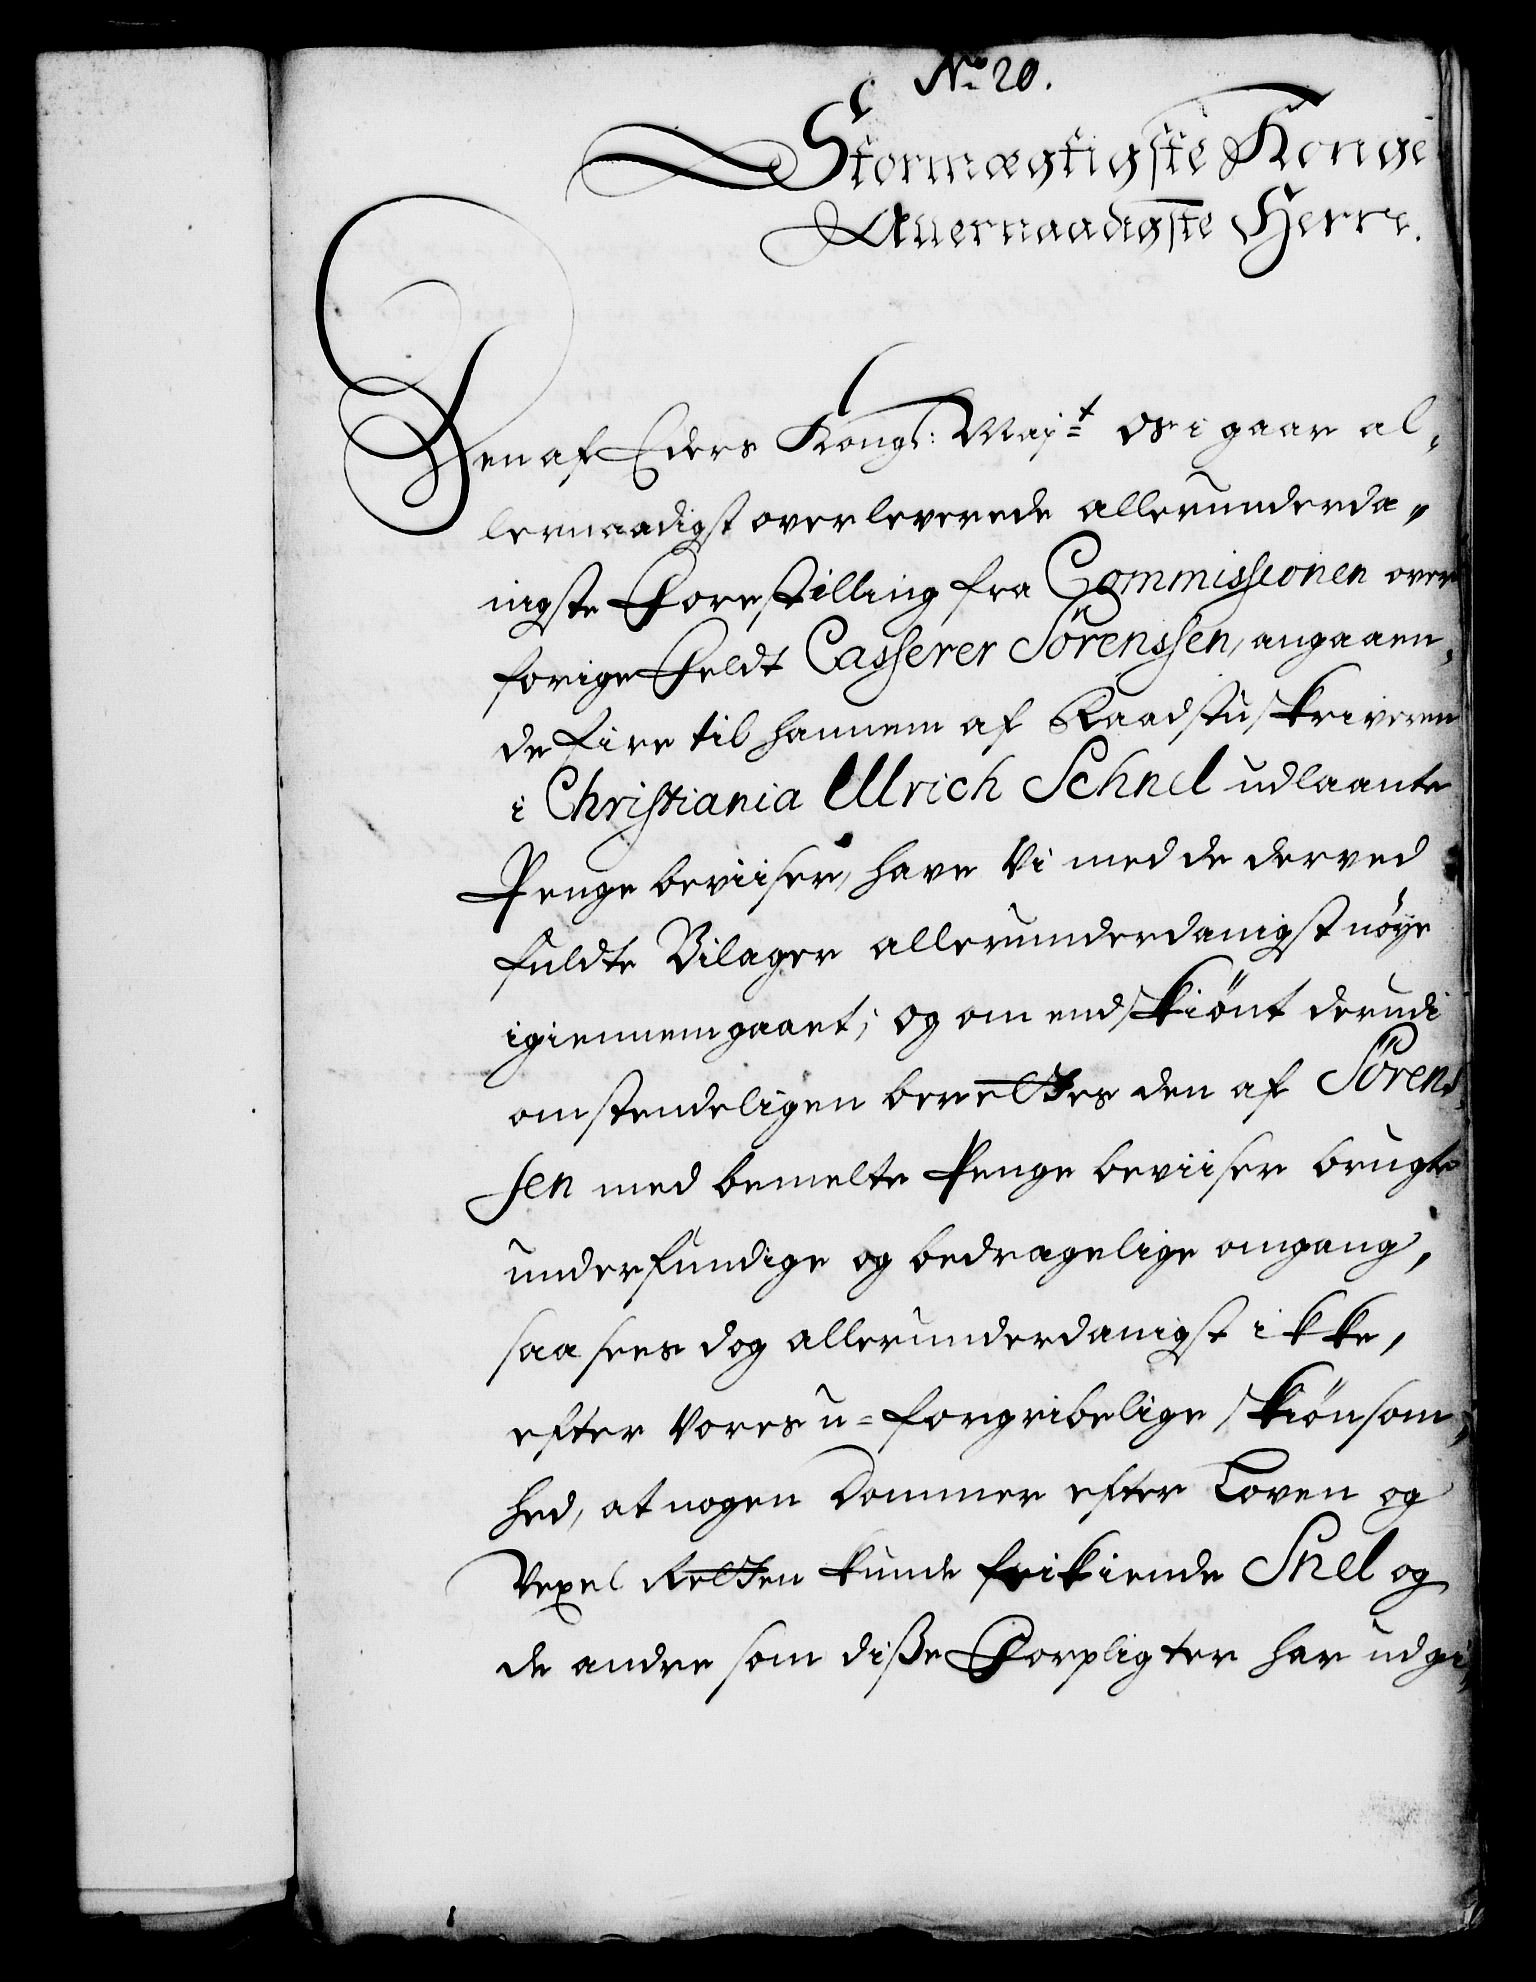 No 20.
Stormægtigste Konge
Allernaadigste Herre.
Den af Eders Kongl: Majt os i gaar al,
lernaadigst overleverede allerunderda„
nigste Forestilling fra Commissionen over
forige Feldt Casserer Sörenssen, angaaen,
de fire til hannem af Raadstuskriveren
i Christiania Ulrich Schnel udlaante
Penge beviiser, have Vi med de derved
fuldte Bilager allerunderdanigst nöye
igiennemgaaet; og om endskiönt derudi
omstendeligen berettes den af Sörens,
sen med bemelte Penge beviiser brugte
underfundige og bedragelige omgang,
saa sees dog allerunderdanigst ikke,
efter Vores u-forgribelige skiönsom„
hed, at nogen Dommer efter Loven og
Vexel Retten kunde frikiende Snel og
de andre som diße Forpligter har udgi„